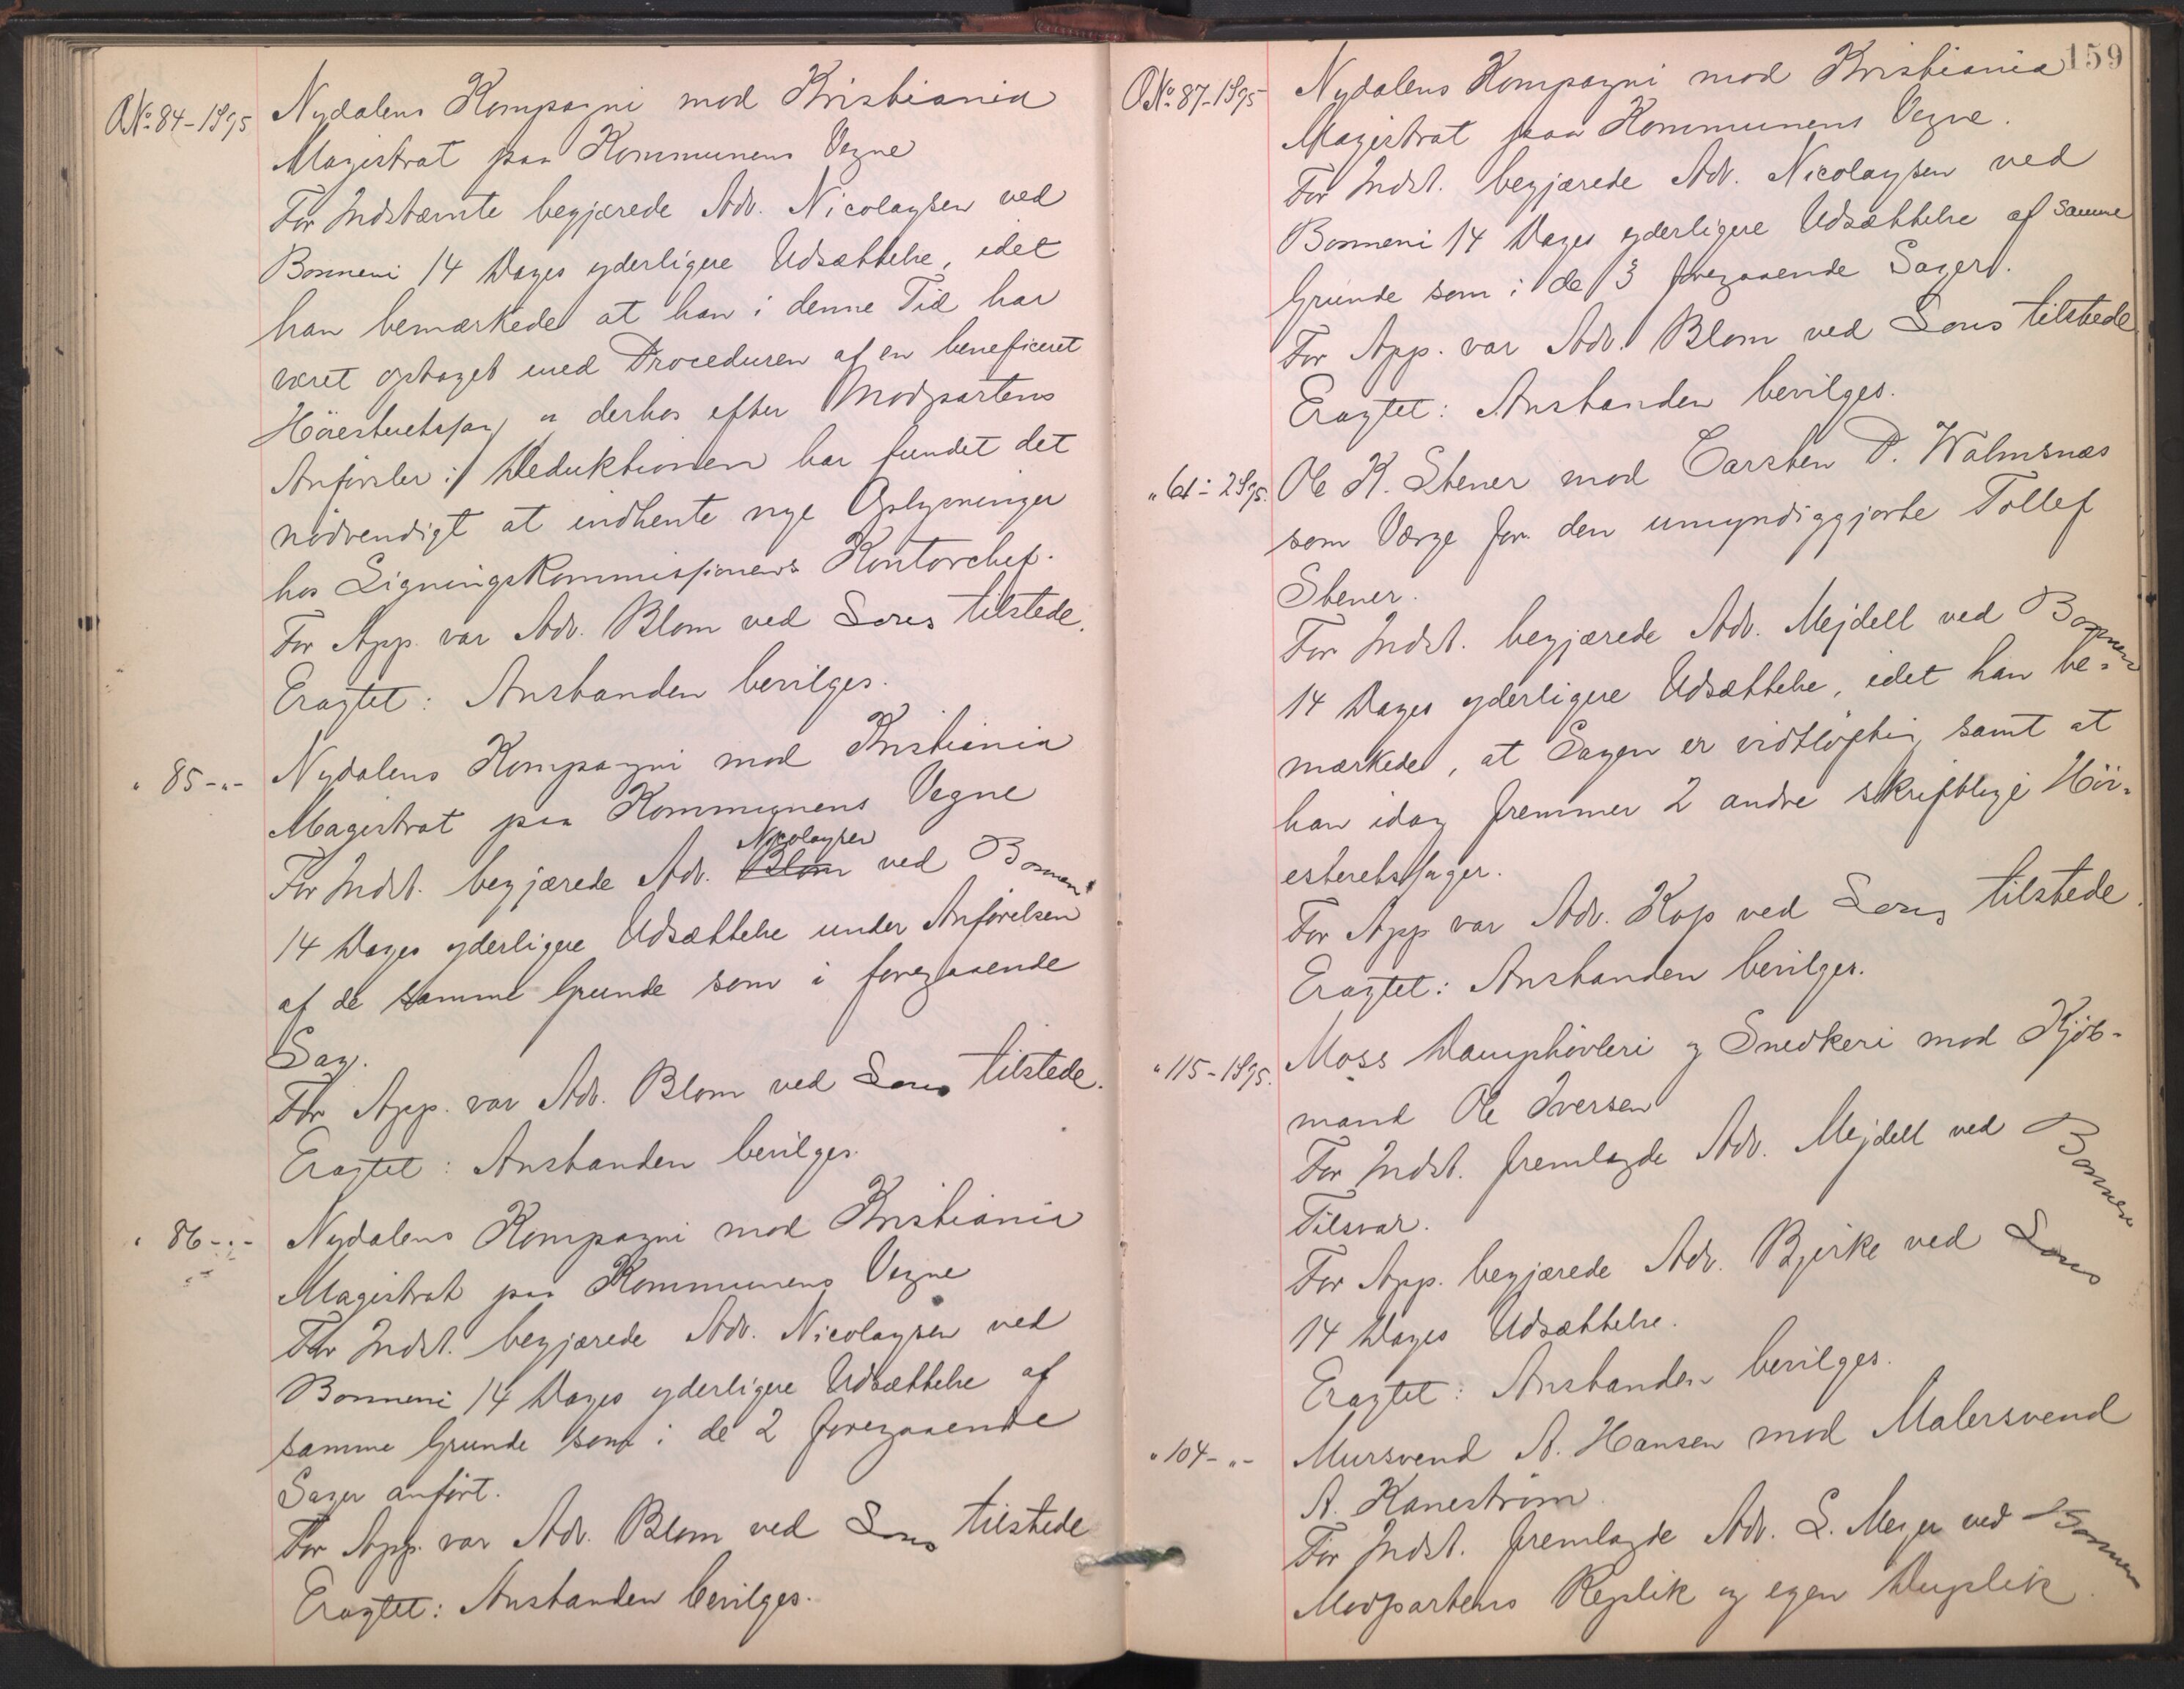 O№ 84-1895
Nydalens Kompagni mod Kristiania
Magistrat paa Kommunens Vegne
For Indstævnte begjærede Adv. Nicolaysen ved
Bonnevi 14 Dages yderligere Udsættelse, idet
han bemærkede at han i denne Tid har
været optaget med Proceduren af en beneficeret
Höiesteretssag og derhos efter Modpartens
Anförsler i Deduktionen har fundet det
nödvendigt at indhente nye Oplysninger
hos Ligningskommissionens Kontorchef.
For App. var Adv. Blom ved Sons tilstede.
Eragtet: Anstanden bevilges.
" 85-"-
Nydalens Kompagni mod Kristiania
Magistrat paa Kommunens Vegne
Nicolaysen
For Indst. begjærede Adv. Blom ved Bonnevi
14 Dages yderligere Udsættelse under Anförelsen
af de samme Grunde som i foregaaende
Sag.
For App. var Adv. Blom ved Sons tilstede.
Eragtet: Anstanden bevilges.
" 86-"-
Nydalens Kompagni mod Kristiania
Magistrat paa Kommunens Vegne
For Indst. begjærede Adv. Nicolaysen ved
Bonnevi 14 Dages yderligere Udsættelse af
samme Grunde som i de 2 foregaaende
Sager anfört.
For App. var Adv. Blom ved Sons tilstede
Eragtet: Anstanden bevilges.
159
O№ 87-1895
Nydalens Kompagni mod Kristiania
Magistrat paa Kommunens Vegne.
For Indst. begjærede Adv. Nicolaysen ved
Bonnevi 14 Dages yderligere Udsættelse af samme
Grunde som i de 3 foregaaende Sager.
For App. var Adv. Blom ved Sons tilstede
Eragtet: Anstanden bevilges.
" 61-295.
Ole K. Stener mod Carsten P. Walmsnæs
som Værge for den umyndiggjorte Tollef
Stener.
For Indst. begjærede Adv. Mejdell ved Bonnevi
14 Dages yderligere Udsættelse, idet han be-
mærkede, at Sagen er vidtlöftig samt at
han idag fremmer 2 andre skriftlige Höi-
esteretssager.
For App var Adv. Kop ved Sons tilstede.
Eragtet: Anstanden bevilges.
" 115-1895.
Moss Damphövleri og Snedkeri mod Kjöb-
mand Ole Iversen
For Indst. fremlagde Adv. Mejdell ved Bonnevi
Tilsvar.
For App. begjærede Adv. Bjerke ved Sons
14 Dages Udsættelse.
Eragtet: Anstanden bevilges.
" 104-"-
Mursvend A. Hansen mod Malersvend
A. Kaneström.
For Indst. fremlagde Adv. L. Meyer ved Bonnevi
Modpartens Replik og egen Duplik.